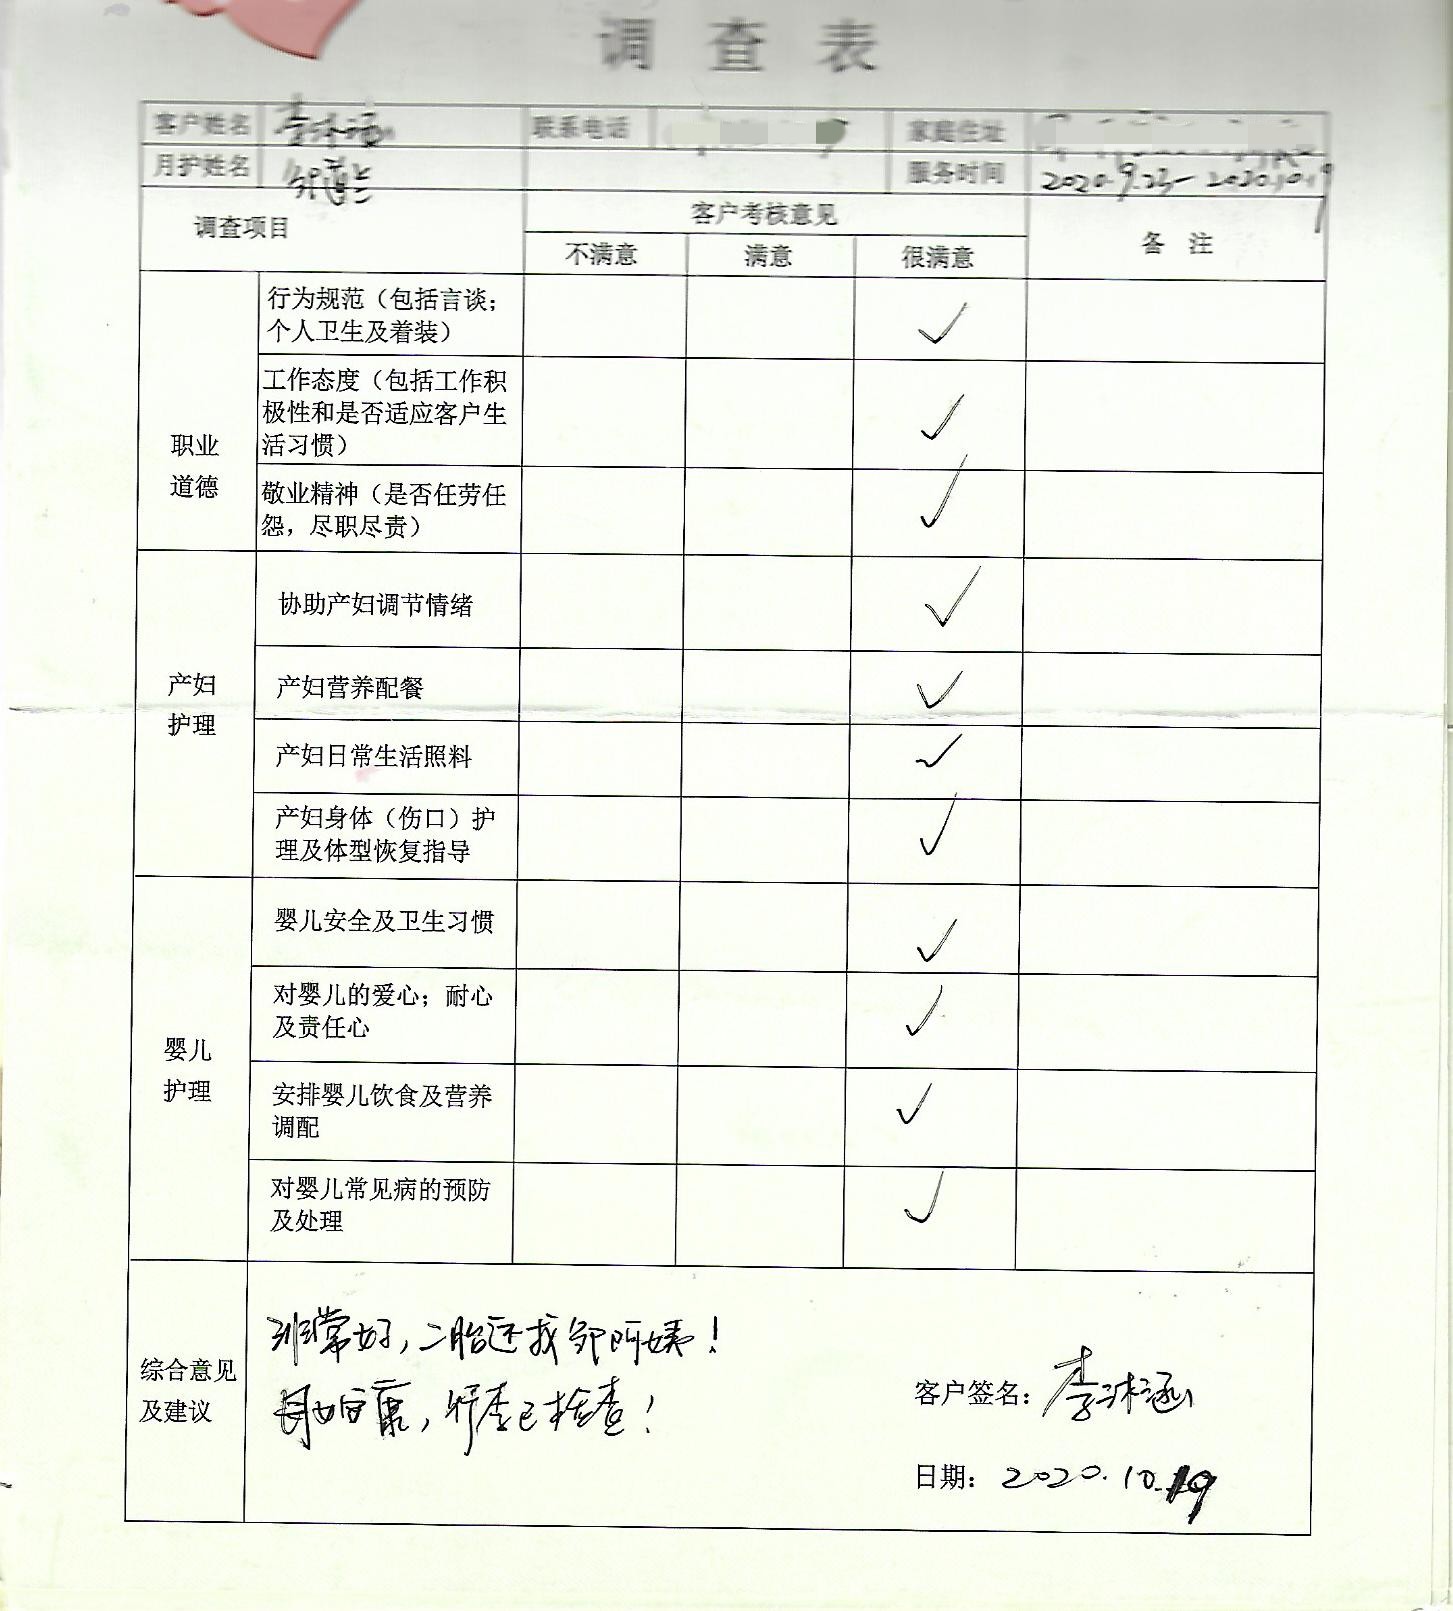 调查表
客户姓名 李沐涵 联系电话 家庭住址
月护姓名 服务时间 2020.9.23-2020.10.19
调查项目 客户考核意见 备 注
不满意 满意 很满意
职业
道德
行为规范（包括言谈；
个人卫生及着装） ✓
工作态度（包括工作积
极性和是否适应客户生
活习惯） ✓
敬业精神（是否任劳任
怨，尽职尽责） ✓
产妇
护理
协助产妇调节情绪 ✓
产妇营养配餐 ✓
产妇日常生活照料 ✓
产妇身体（伤口）护
理及体型恢复指导 ✓
婴儿
护理
婴儿安全及卫生习惯 ✓
对婴儿的爱心；耐心
及责任心 ✓
安排婴儿饮食及营养
调配 ✓
对婴儿常见病的预防
及处理 ✓
综合意见
及建议
非常好，二胎还找邹阿姨！
母婴健康，行李已检查！
客户签名：李沐涵
日期：2020.10.19